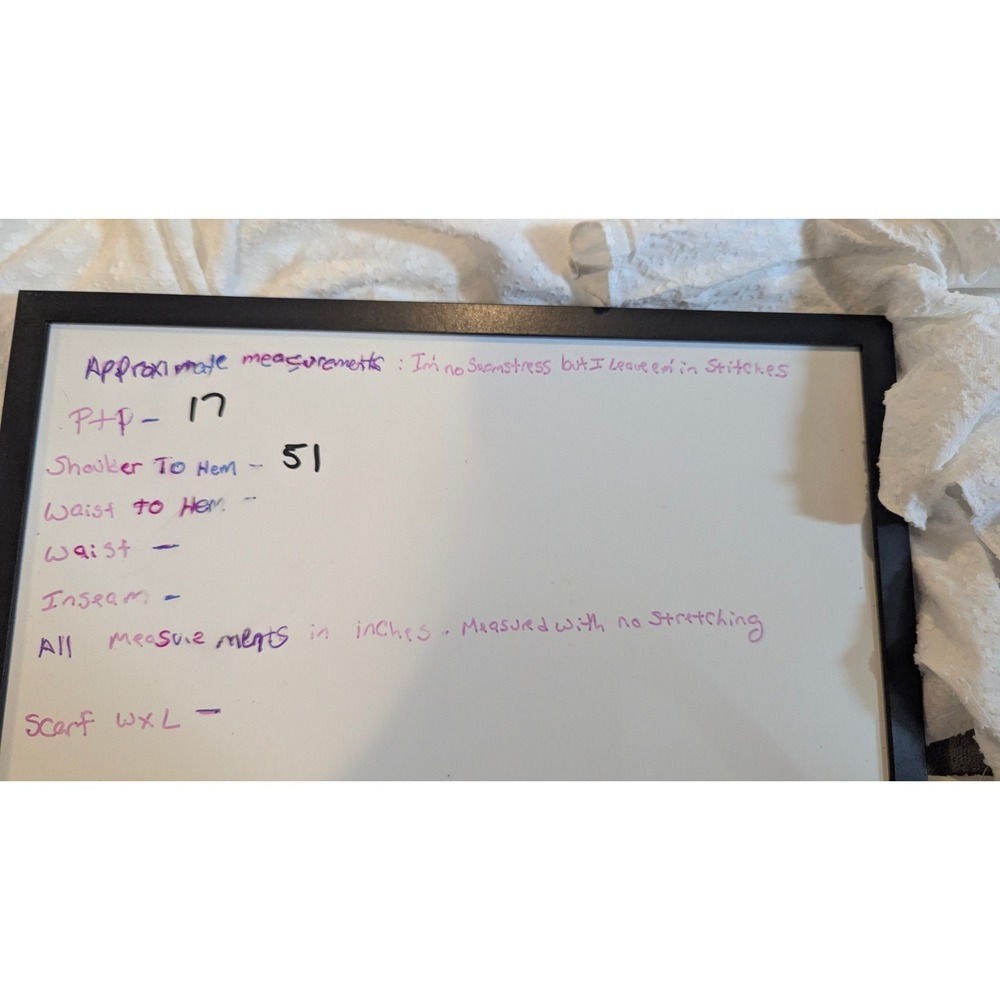 Approximate measurements : I'm no Seamstress but I Leave em' in Stitches
P+P - 17
Shoulder To Hem - 51
Waist to Hem -
Waist -
Inseam -
All measurements in inches. Measured with no stretching
Scarf W x L -